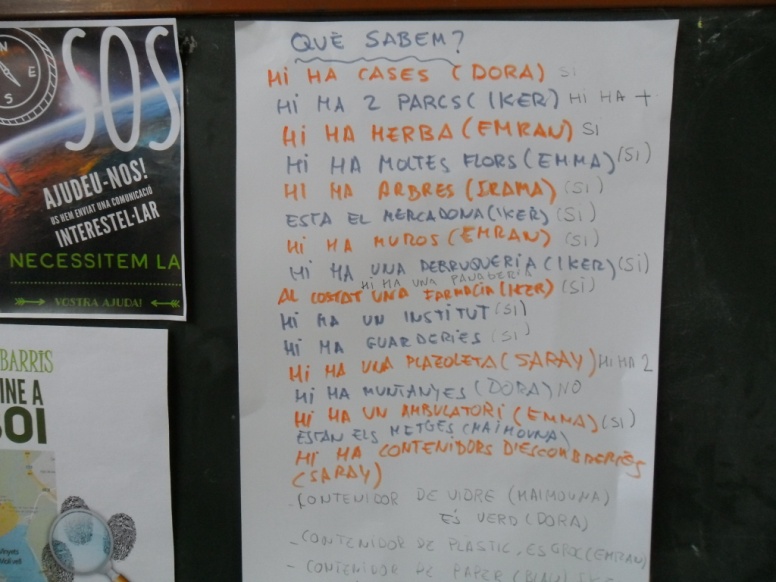 N
E
S
SOS
AJUDEU-NOS!
US HEM ENVIAT UNA COMUNICACIÓ
INTERESTEL·LAR
NECESSITEM LA
VOSTRA AJUDA!
BARRIS
INE A
BOI
QUÈ SABEM?
HI HA CASES (DORA) SI
HI HA 2 PARCS (IKER) HI HA +
HI HA HERBA (EMRAN) SI
HI HA MOLTES FLORS (EMMA) (SI)
HI HA ARBRES (IRAMA) (SI)
ESTA EL MERCADONA (IKER) (SI)
HI HA MUROS (EMRAN) (SI)
HI HA UNA DEBRUGUERIA (IKER) (SI)
HI HA UNA PANADERIA
AL COSTAT UNA FARMACIA (IKER) (SI)
HI HA UN INSTITUT (SI)
HI HA GUARDERIES (SI)
HI HA UNA PLAZOLETA (SARAY) HI HA 2
HI HA MUNTANYES (DORA) NO
HI HA UN AMBULATORI (EMMA) (SI)
ESTAN ELS METGES (MAIMOUNA)
HI HA CONTENIDORS D'ESCOMBRERIES
(SARAY)
- CONTENIDOR DE VIDRE (MAIMOUNA)
ÉS VERD (DORA)
- CONTENIDOR DE PLÀSTIC, ES GROC (EMRAN)
- CONTENIDOR DE PAPER